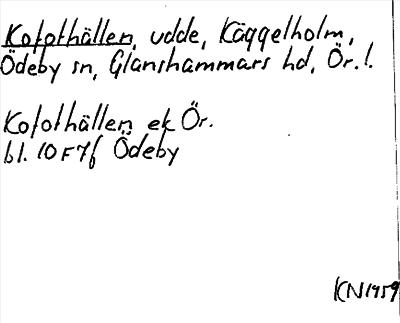 Kofothällen, udde, Käggelholm,
Ödeby sn, Glanshammars hd, Ör. l.
Kofothällen ek Ör.
bl. 10F7f Ödeby
KN 1959